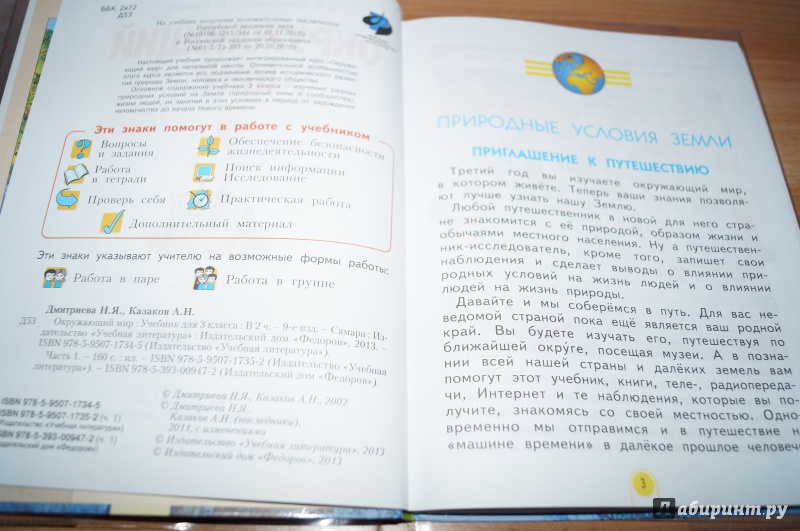 ББК 2я72
Д53
На учебник получены положительные заключения
Российской академии наук
(№10106-5215/344 от 01.11.2010)
и Российской академии образования
(№01-5/7д-395 от 20.10.2010)
Настоящий учебник продолжает интегрированный курс «Окружа-
ющий мир» для начальной школы. Отличительной особенностью
этого курса является его подчинение логике исторического разви-
тия природы Земли, человека и человеческого общества.
Основное содержание учебника 3 класса – изучение разных
природных условий на Земле (природные зоны и сообщества),
жизни людей, их занятий в этих условиях в период от зарождения
человечества до начала Нового времени.
Эти знаки помогут в работе с учебником
Вопросы
и задания
Обеспечение безопасности
жизнедеятельности
Работа
в тетради
Поиск информации.
Исследование
Проверь себя
Практическая работа
Дополнительный материал
Эти знаки указывают учителю на возможные формы работы:
Работа в паре
Работа в группе
Дмитриева Н.Я., Казаков А.Н.
Д53 Окружающий мир : Учебник для 3 класса : В 2 ч. – 9-е изд. – Самара : Из-
дательство «Учебная литература» : Издательский дом «Федоров», 2013. –
ISBN 978-5-9507-1734-5 (Издательство «Учебная литература»).
Часть 1. – 160 с. : ил. – ISBN 978-5-9507-1735-2 (Издательство «Учебная
литература»). – ISBN 978-5-393-00947-2 (Издательский дом «Федоров»).
ISBN 978-5-9507-1734-5
ISBN 978-5-9507-1735-2 (ч. 1)
Издательство «Учебная литература»)
ISBN 978-5-393-00947-2 (ч. 1)
Издательский дом «Федоров»)
© Дмитриева Н.Я., Казаков А.Н., 2002
© Дмитриева Н.Я.,
Казаков А.Н. (наследники),
2011, с изменениями
© Издательство «Учебная литература», 2013
© Издательский дом «Федоров», 2013
ПРИРОДНЫЕ УСЛОВИЯ ЗЕМЛИ
ПРИГЛАШЕНИЕ К ПУТЕШЕСТВИЮ
Третий год вы изучаете окружающий мир,
в котором живёте. Теперь ваши знания позволя-
ют лучше узнать нашу Землю.
Любой путешественник в новой для него стра-
не знакомится с её природой, образом жизни и
обычаями местного населения. Ну а путешествен-
ник-исследователь, кроме того, запишет свои
наблюдения и сделает выводы о влиянии при-
родных условий на жизнь людей и о влиянии
людей на жизнь природы.
Давайте и мы соберёмся в путь. Для вас не-
ведомой страной пока ещё является ваш родной
край. Вы будете изучать его, путешествуя по
ближайшей окру́ге, посещая музеи. А в позна-
нии всей нашей страны и далёких земель вам
помогут этот учебник, книги, теле-, радиопереда-
чи, Интернет и те наблюдения, которые вы по-
лучите, знакомясь со своей местностью. Одно-
временно мы отправимся и в путешествие на
«машине времени» в далёкое прошлое человече
3
Лабиринт.ру